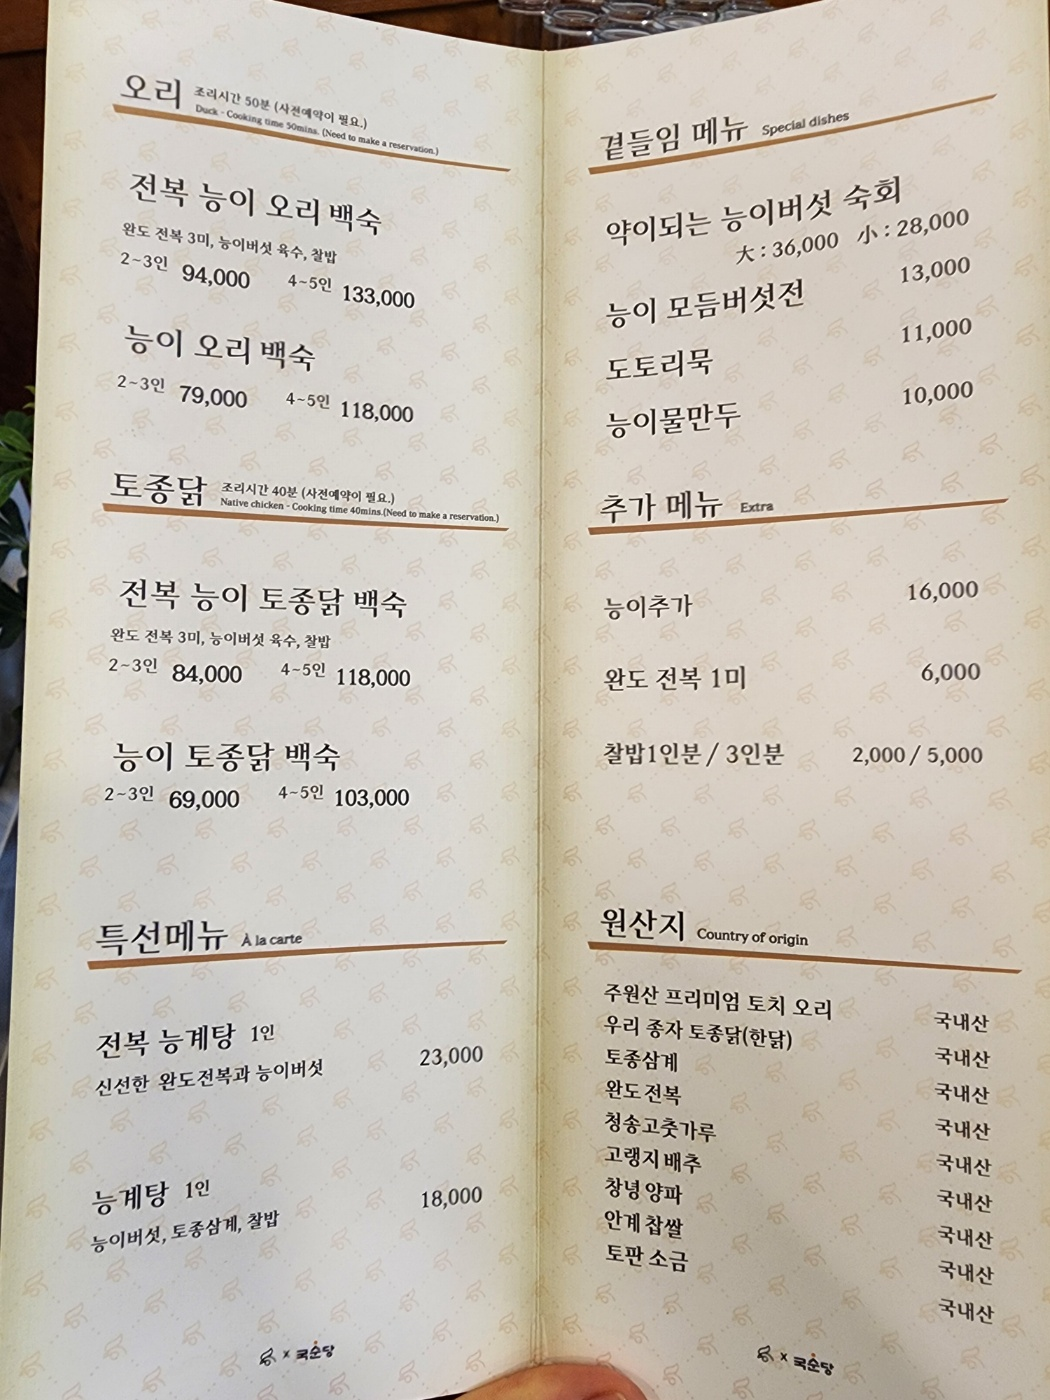 오리 조리시간 50분 (사전예약이 필요.)
Duck - Cooking time 50mins. (Need to make a reservation.)
전복 능이 오리 백숙
완도 전복 3미, 능이버섯 육수, 찰밥
2~3인 94,000 4~5인 133,000
능이 오리 백숙
2~3인 79,000 4~5인 118,000
토종닭 조리시간 40분 (사전예약이 필요.)
Native chicken - Cooking time 40mins.(Need to make a reservation.)
전복 능이 토종닭 백숙
완도 전복 3미, 능이버섯 육수, 찰밥
2~3인 84,000 4~5인 118,000
능이 토종닭 백숙
2~3인 69,000 4~5인 103,000
특선메뉴 À la carte
전복 능계탕 1인
신선한 완도전복과 능이버섯 23,000
능계탕 1인
능이버섯, 토종삼계, 찰밥 18,000
능 x 국순당
곁들임 메뉴 Special dishes
약이되는 능이버섯 숙회
大 : 36,000 小 : 28,000
능이 모듬버섯전 13,000
도토리묵 11,000
능이물만두 10,000
추가 메뉴 Extra
능이추가 16,000
완도 전복 1미 6,000
찰밥1인분 / 3인분 2,000 / 5,000
원산지 Country of origin
주원산 프리미엄 토치 오리 국내산
우리 종자 토종닭(한닭) 국내산
토종삼계 국내산
완도전복 국내산
청송고춧가루 국내산
고랭지배추 국내산
창녕양파 국내산
안계찹쌀 국내산
토판 소금 국내산
능 x 국순당